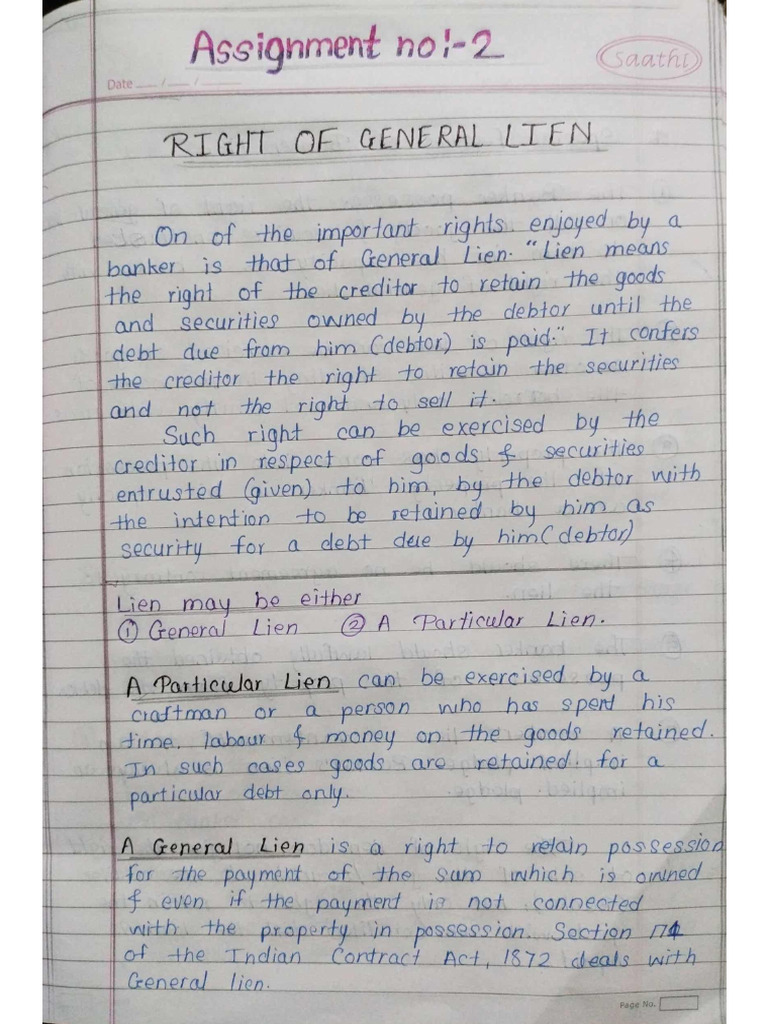 Assignment no:-2
Saathi
Date ___ / ___ / ___
RIGHT OF GENERAL LIEN
On of the important rights enjoyed by a
banker is that of General Lien. "Lien means
the right of the creditor to retain the goods
and securities owned by the debtor until the
debt due from him (debtor) is paid." It confers
the creditor the right to retain the securities
and not the right to sell it.
Such right can be exercised by the
creditor in respect of goods & securities
entrusted (given) to him, by the debtor with
the intention to be retained by him as
security for a debt due by him (debtor)
Lien may be either
① General Lien ② A Particular Lien.
A Particular Lien can be exercised by a
craftman or a person who has spend his
time, labour & money on the goods retained.
In such cases goods are retained for a
particular debt only.
A General Lien is a right to retain possession
for the payment of the sum which is owned
& even if the payment is not connected
with the property in possession. Section 171
of the Indian Contract Act, 1872 deals with
General lien.
Page No.